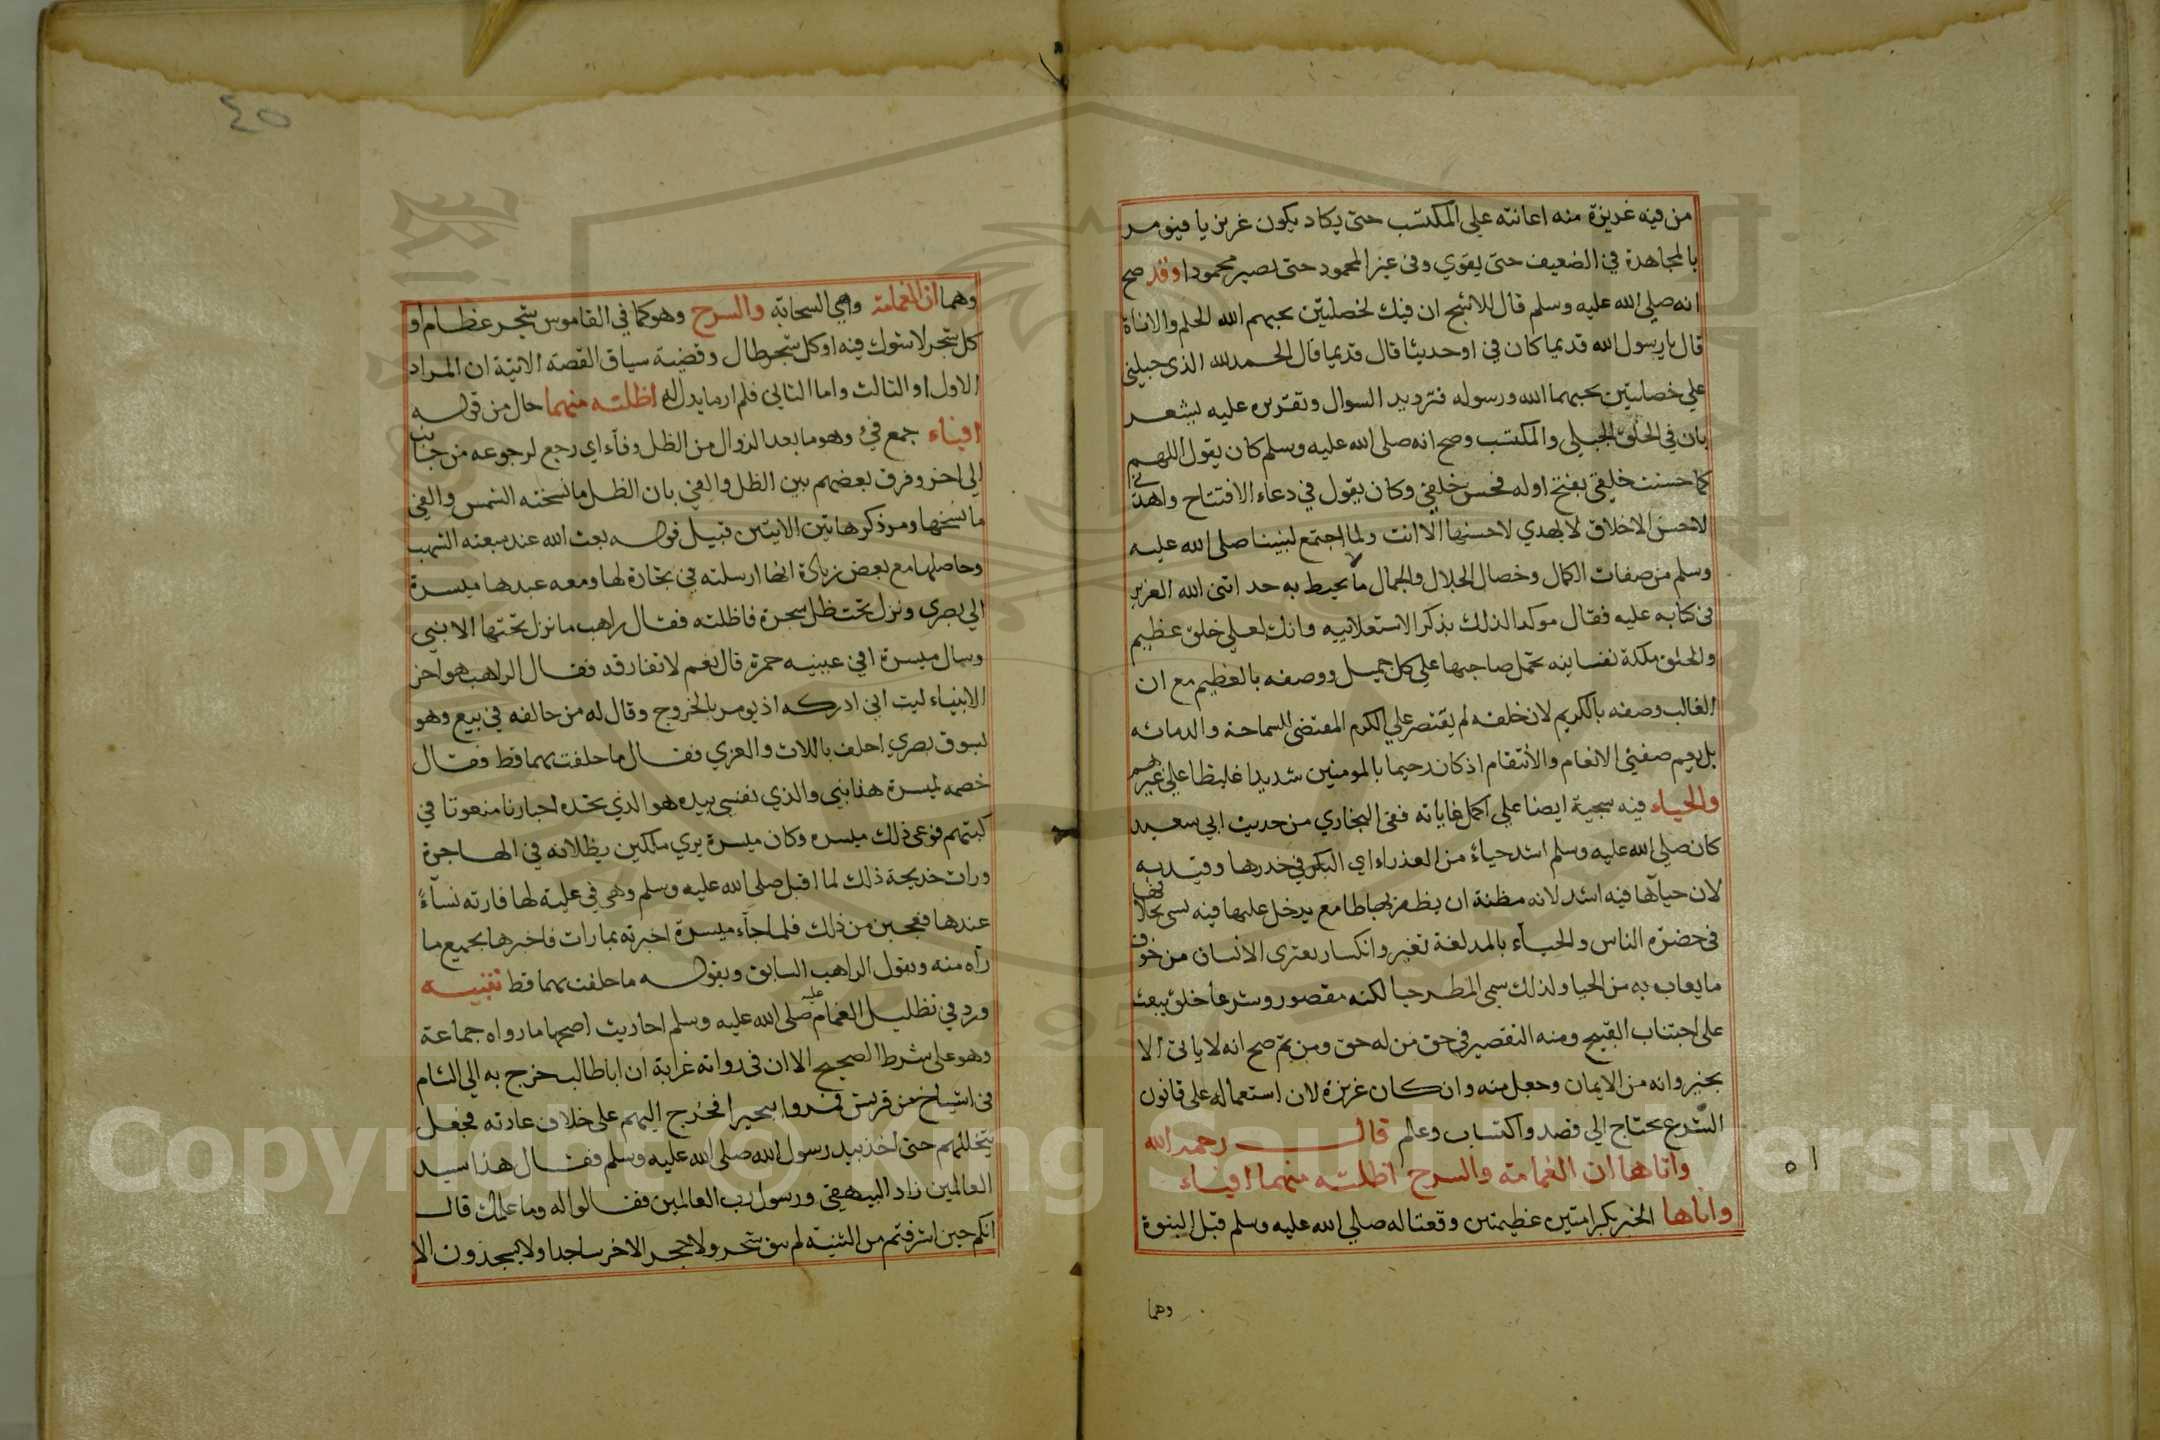 من فيه غريزة منه اعانته على المكتسب حتى يكاد يكون غريزيا فيومر
بالمجاهدة في الضعيف حتى يقوي وفي غير المحمود حتى يصير محمودا وقد صح
انه صلى الله عليه وسلم قال للاشج ان فيك لخصلتين يحبهم الله الحلم والاناة
قال يا رسول الله قديما كان في او حديثا قال قديما قال الحمد لله الذى جبلني
على خصلتين يحبهما الله ورسوله فترديد السوال وتقريره عليه يشعر
بان في الخلق الجبلى والمكتسب وصح انه صلى الله عليه وسلم كان يقول اللهم
كما حسنت خلقي بفتح اوله فحسن خلقي وكان يقول في دعاء الافتتاح واهدني
لاحسن الاخلاق لا يهدي لاحسنها الا انت ولما اجتمع لنبينا صلى الله عليه
وسلم من صفات الكمال وخصال الجلال والجمال ما لا يحيط به حد اثنى الله العزيز
في كتابه عليه فقال موكدا لذلك بذكر الاستعلاييه وانك لعلى خلق عظيم
والخلق ملكة نفسانيه تحمل صاحبها على كل جميل ووصفه بالعظيم مع ان
الغالب وصفه بالكريم لان خلقه لم يقتصر على الكرم المقتضى للسماحة والدماثه
بل يعم صفتي الانعام والأنتقام اذ كان رحيما بالمومنين شديدا غليظا على غيرهم
والحياء فيه سجية ايضا على اكمل غاياته ففى البخاري من حديث ابي سعيد
كان صلى الله عليه وسلم اشد حياءً من العذراء اى البكر في خدرها وقيد به
لان حياها فيه اشد لانه مظنة ان يظفر بها طامع يدخل عليها فيه لسى بخلافها
في حضرة الناس والحياء بالمد لغة تغير وانكسار يعترى الانسان من خوف
ما يعاب به من الحيا ولذلك سمى المطر حيا لكنه مقصور وشرعا خلق يبعث
على اجتناب القبيح ومنه التقصير في حق من له حق ومن ثم صح انه لا ياتى الا
بخير وانه من الايمان وجعل منه وان كان غريزة لان استعماله على قانون
الشرع يحتاج الى قصد واكتساب وعلم قال رحمه الله
واتاها ان الغمامة والسرح اظلته منهما افياء
واتاها الخبر بكرامتين عظيمتين وقعتا له صلى الله عليه وسلم قبل النبوة
٥١
وهما
٤٥
وهما ان الغمامة وهي السحابة والسرح وهو كما في القاموس شجر عظام او
كل شجر لا شوك فيه او كل شجر طال وقضية سياق القصة الاتية ان المراد
الاول او الثالث واما الثاني فلم ار ما يدل له اظلته منهما حال من قوله
افياء جمع فئ وهو ما بعد الزوال من الظل وفاء اي رجع لرجوعه من جانب
الى اخر وفرق بعضهم بين الظل والفي بان الظل ما نسخته الشمس والفي
ما نسخها ومر ذكر هاتين الايتين قبيل قوله بعث الله عند مبعثه الشهب
وحاصلها مع بعض زيادة انها ارسلته في تجارة لها ومعه عبدها ميسرة
الي بصرى ونزل تحت ظل شجرة فاظلته فقال راهب ما نزل تحتها الا نبي
وسال ميسرة افي عينيه حمرة قال نعم لا تفارقه فقال الراهب هو اخر
الانبياء ليت اني ادركه اذ يومر بالخروج وقال له من خالفه في بيع وهو
بسوق بصري احلف باللات والعزي فقال ما حلفت بهما قط فقال
خصمه لميسرة هذا نبي والذي نفسي بيده هو الذي تجده احبارنا منعوتا في
كتبهم فوعى ذلك ميسره وكان ميسرة يري ملكين يظلانه في الهاجرة
ورات خديجة ذلك لما اقبل صلى الله عليه وسلم وهي في علية لها فارته نساءً
عندها فعجبن من ذلك فلما جاء ميسرة اخبرته بما رات فاخبرها بجميع ما
رآه منه وبقول الراهب السابق وبقوله ما حلفت بهما قط تنبيه
ورد في تظليل الغمام عليه صلى الله عليه وسلم احاديث اصحها ما رواه جماعة
وهو على شرط الصحيح الا ان في رواته غرابة ان ابا طالب خرج به الي الشام
في اشياخ من قريش فمروا ببحيرا فخرج اليهم على خلاف عادته فجعل
يتخللهم حتى اخذ بيد رسول الله صلى الله عليه وسلم وقال هذا سيد
العالمين زاد البيهقي ورسول رب العالمين فقالوا له وما علمك قال
انكم حين اشرفتم من الثنية لم يبق شجر ولا حجر الا خر ساجدا ولا يسجدون الا
Copyright © King Saud University